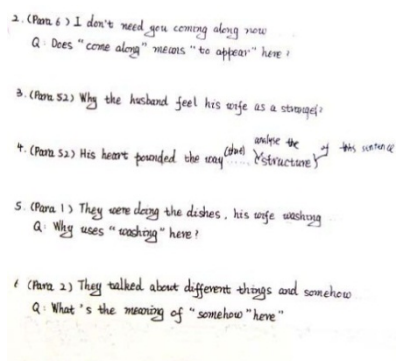 2. (Para 6) I don't need you coming along now
Q: Does "come along" means "to appear" here?
3. (Para 52) Why the husband feel his wife as a stranger?
4. (Para 52) His heart pounded the way ...... (analyse the structure) of this sentence
5. (Para 1) They were doing the dishes, his wife washing
Q: Why uses "washing" here?
(Para 2) They talked about different things and somehow
Q: What's the meaning of "somehow" here"